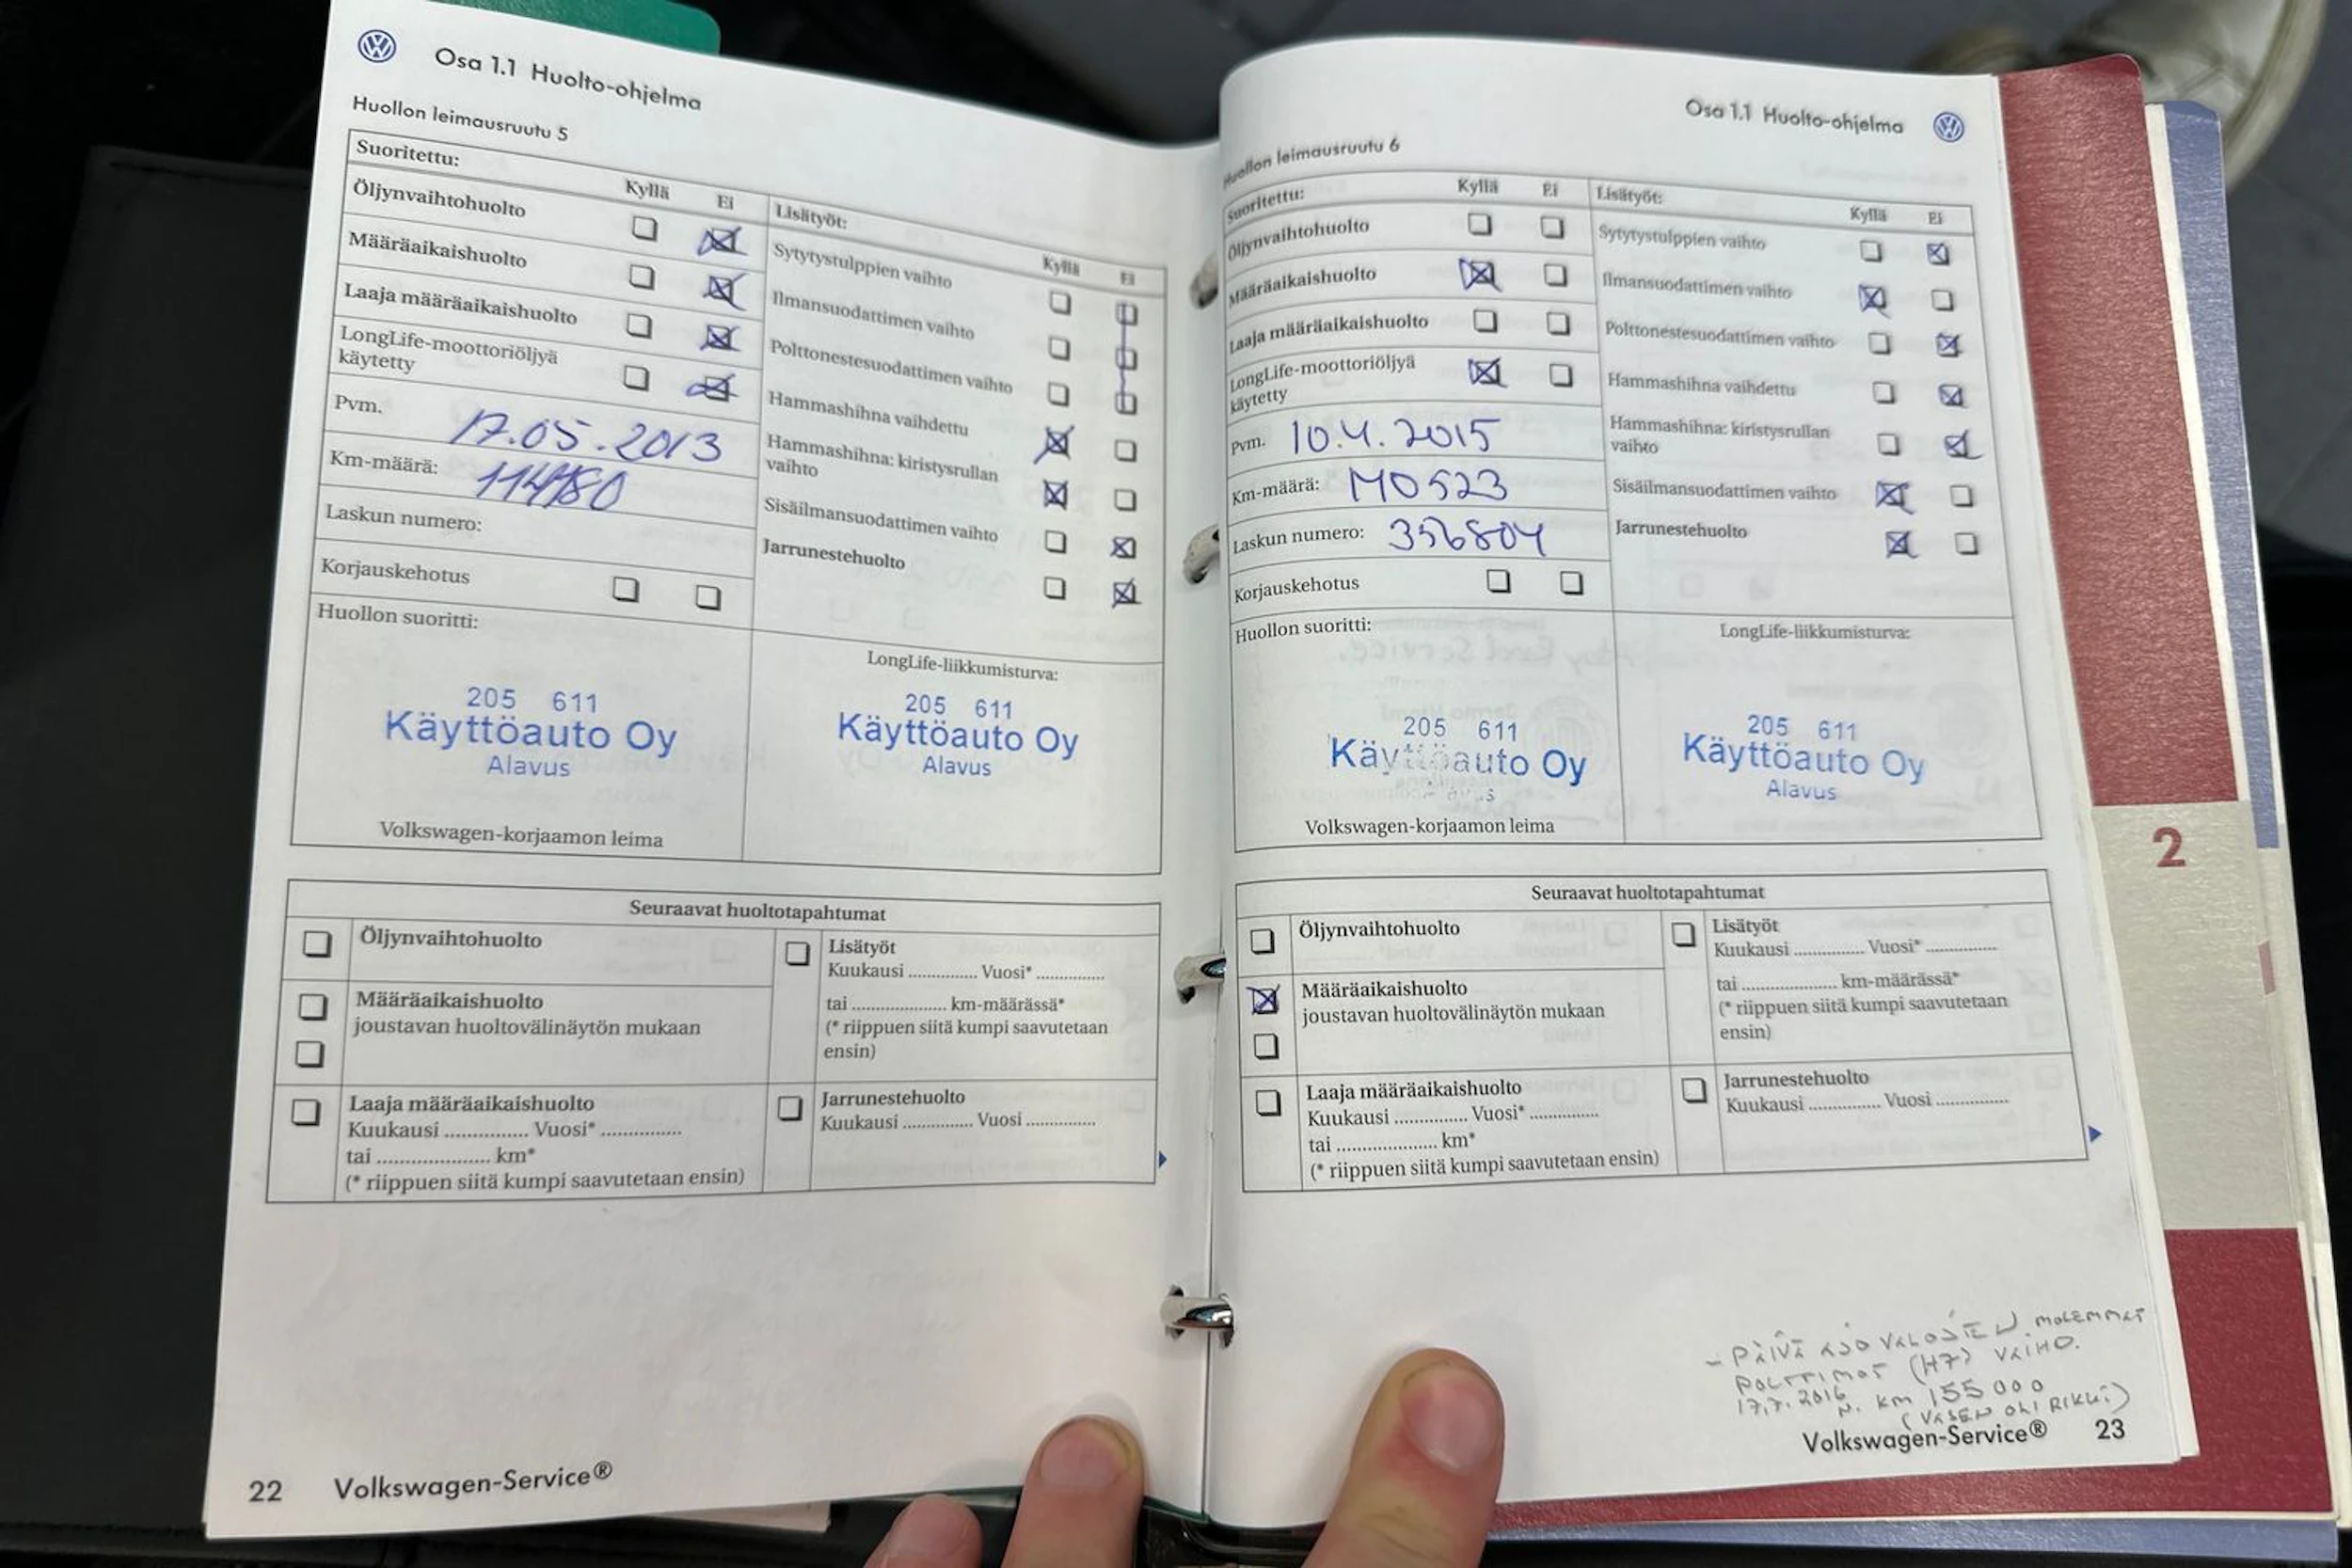 Osa 1.1 Huolto-ohjelma
Huollon leimausruutu 5
Suoritettu:
Kyllä Ei
Öljynvaihtohuolto
Määräaikaishuolto
Laaja määräaikaishuolto
LongLife-moottoriöljyä
käytetty
Pvm. 17.05.2013
Km-määrä: 114180
Laskun numero:
Korjauskehotus
Lisätyöt:
Kyllä Ei
Sytytystulppien vaihto
Ilmansuodattimen vaihto
Polttonestesuodattimen vaihto
Hammashihna vaihdettu
Hammashihna: kiristysrullan
vaihto
Sisäilmansuodattimen vaihto
Jarrunestehuolto
Huollon suoritti:
205 611
Käyttöauto Oy
Alavus
Volkswagen-korjaamon leima
LongLife-liikkumisturva:
205 611
Käyttöauto Oy
Alavus
Seuraavat huoltotapahtumat
Öljynvaihtohuolto
Määräaikaishuolto
joustavan huoltovälinäytön mukaan
Laaja määräaikaishuolto
Kuukausi ............... Vuosi* ...............
tai .................... km*
(* riippuen siitä kumpi saavutetaan ensin)
Lisätyöt
Kuukausi ............. Vuosi* .............
tai .................. km-määrässä*
(* riippuen siitä kumpi saavutetaan
ensin)
Jarrunestehuolto
Kuukausi ............. Vuosi .............
22 Volkswagen-Service®
Osa 1.1 Huolto-ohjelma
Huollon leimausruutu 6
Suoritettu:
Kyllä Ei
Öljynvaihtohuolto
Määräaikaishuolto
Laaja määräaikaishuolto
LongLife-moottoriöljyä
käytetty
Pvm. 10.4.2015
Km-määrä: 140523
Laskun numero: 356804
Korjauskehotus
Lisätyöt:
Kyllä Ei
Sytytystulppien vaihto
Ilmansuodattimen vaihto
Polttonestesuodattimen vaihto
Hammashihna vaihdettu
Hammashihna: kiristysrullan
vaihto
Sisäilmansuodattimen vaihto
Jarrunestehuolto
Huollon suoritti:
205 611
Käyttöauto Oy
Volkswagen-korjaamon leima
LongLife-liikkumisturva:
205 611
Käyttöauto Oy
Alavus
Seuraavat huoltotapahtumat
Öljynvaihtohuolto
Määräaikaishuolto
joustavan huoltovälinäytön mukaan
Laaja määräaikaishuolto
Kuukausi ............. Vuosi* .............
tai .................. km*
(* riippuen siitä kumpi saavutetaan ensin)
Lisätyöt
Kuukausi ............. Vuosi* .............
tai .................. km-määrässä*
(* riippuen siitä kumpi saavutetaan
ensin)
Jarrunestehuolto
Kuukausi ............. Vuosi .............
- PÄIVÄ AJO VALOJEN MOLEMMAT
POLTTIMOT (H7) VAIHO.
17.7.2016 N. KM 155 000
(VASEN OLI RIKKI)
Volkswagen-Service® 23
2